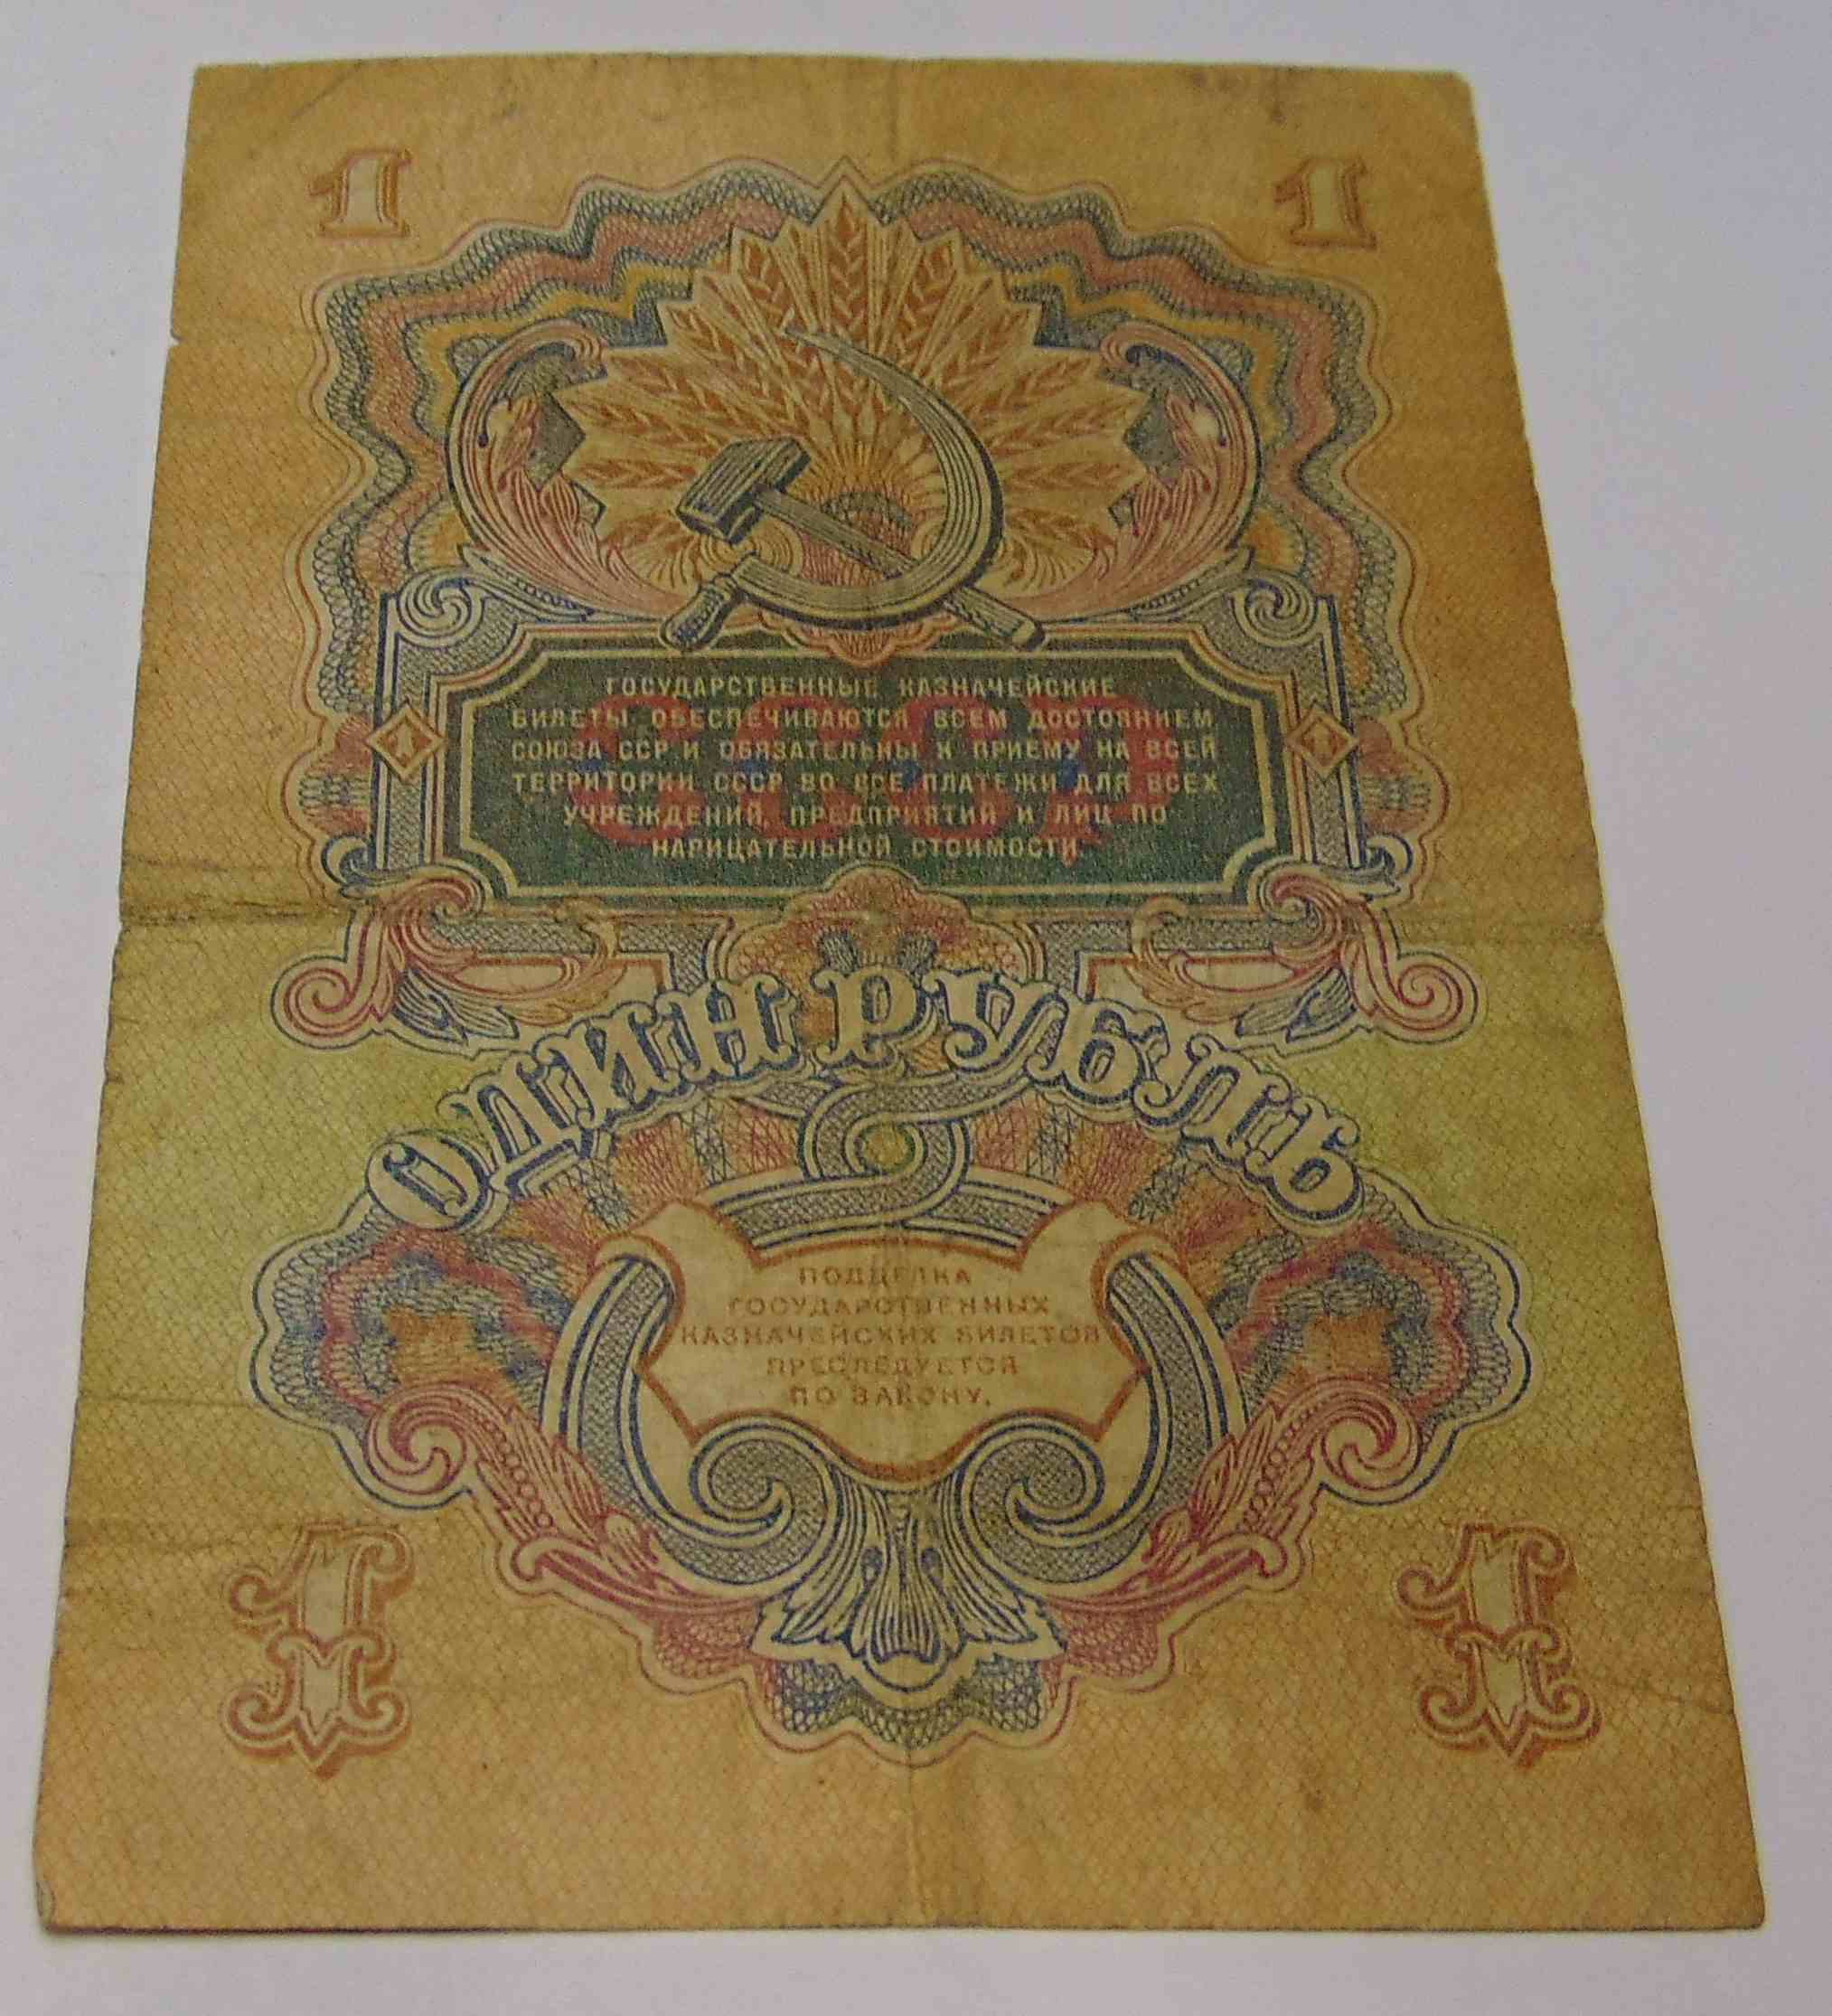 1 1
ГОСУДАРСТВЕННЫЕ КАЗНАЧЕЙСКИЕ
БИЛЕТЫ ОБЕСПЕЧИВАЮТСЯ ВСЕМ ДОСТОЯНИЕМ
СОЮЗА ССР И ОБЯЗАТЕЛЬНЫ К ПРИЕМУ НА ВСЕЙ
ТЕРРИТОРИИ СССР ВО ВСЕ ПЛАТЕЖИ ДЛЯ ВСЕХ
УЧРЕЖДЕНИЙ, ПРЕДПРИЯТИЙ И ЛИЦ ПО
НАРИЦАТЕЛЬНОЙ СТОИМОСТИ.
1 1
СССР
ОДИН РУБЛЬ
ПОДДЕЛКА
ГОСУДАРСТВЕННЫХ
КАЗНАЧЕЙСКИХ БИЛЕТОВ
ПРЕСЛЕДУЕТСЯ
ПО ЗАКОНУ.
1 1